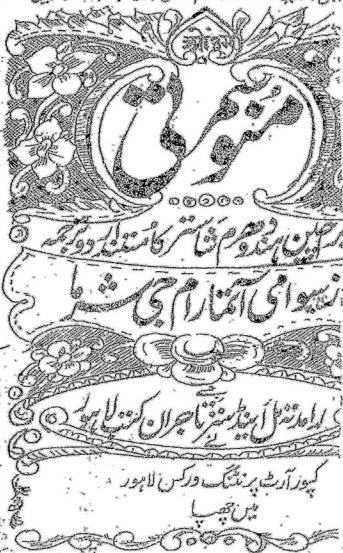 منوسمرتی
ہندو دھرم شاستر کا مستند اردو ترجمہ
سوامی آتمارام جی شرما
اینڈ سنز تاجران کتب لاہور
نے
کپور آرٹ پرنٹنگ ورکس لاہور
میں چھپا